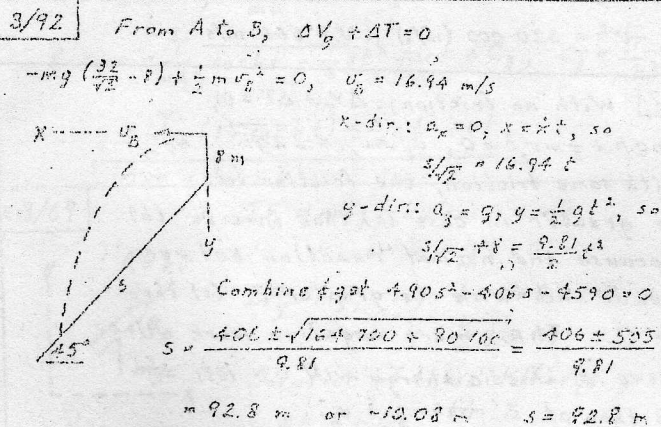 3/92
From A to B, ΔVg + ΔT = 0
-mg (32/√2 - 8) + 1/2 m v_B² = 0, v_B = 16.94 m/s
x-dir.: a_x = 0, x = ẋt, so
s/√2 = 16.94 t
y-dir.: a_y = g, y = 1/2 gt², so
s/√2 + 8 = 9.81/2 t²
Combine & get 4.90s² - 406s - 4590 = 0
s = (406 ± √(164 700 + 90 100))/9.81 = (406 ± 505)/9.81
= 92.8 m or -10.08 m s = 92.8 m
x
v_B
8 m
y
s
45°